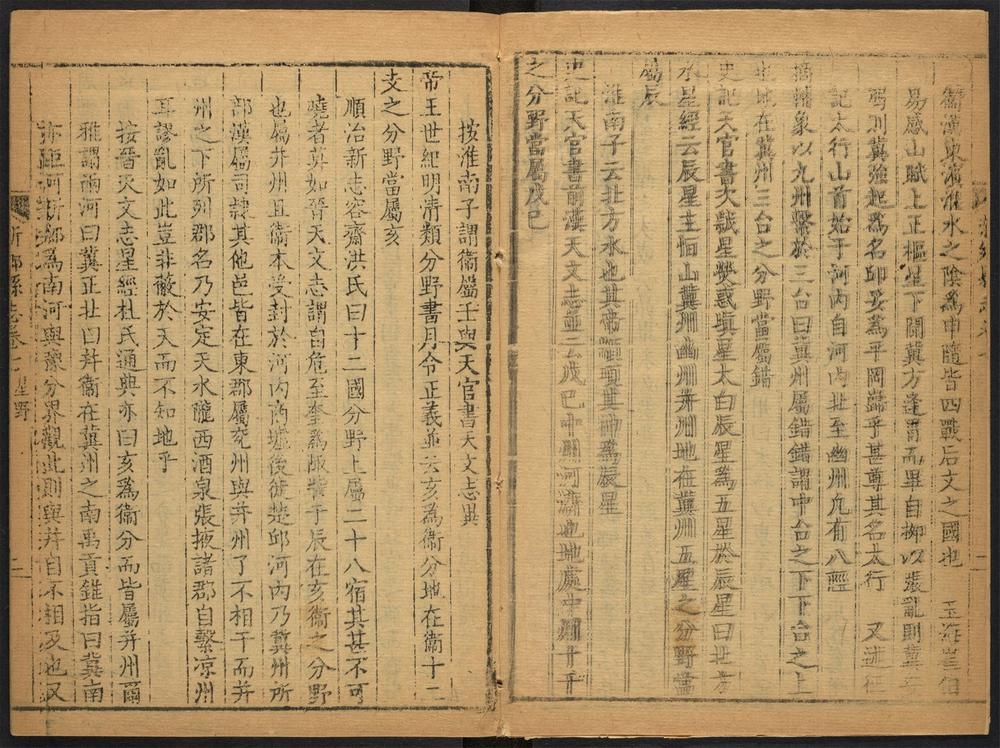 衛漢東濱淮水之陰為申隨皆四戰后文之國也
易感山賦上正樞星下開冀方逢胃而畢自柳以張亂則冀
弱則冀強起為名邱妥為平岡歸乎甚尊其名太行 又述征
記太行山首始于河內自河內北至幽州凡有八陘
摘輔象以九州繫於三台曰冀州屬錯錯謂中台之下下台之上
也地在冀州三台之分野當屬錯
史記天官書火熒星熒惑填星太白辰星為五星於辰星曰北方
水星經云辰星主恒山冀州幽州并州地在冀州五星之分野當
屬辰
淮南子云北方水也其帝顓頊其神為辰星
史記天官書前漢天文志並云戊己中州河濟也地處中州十干
之分野當屬戊己
按淮南子謂衛屬壬與天官書天文志異
帝王世紀明清類分野書月令正義並云亥為衛分地在衛十二
支之分野當屬亥
順治新志容齋洪氏曰十二國分野上屬二十八宿其甚不可
曉者莫如晉天文志謂自危至奎為娵訾于辰在亥衛之分野
也屬并州且衛本受封於河內商墟後徙楚邱河內乃冀州所
部漢屬司隸其他邑皆在東郡屬兗州與并州了不相干而并
州之下所列郡名乃安定天水隴西酒泉張掖諸郡自繫凉州
耳謬亂如此豈非蔽於天而不知地乎
按晉天文志星經杜氏通典亦曰亥為衛分而皆屬并州爾
雅謂兩河曰冀正北曰幷衛在冀州之南禹貢錐指曰冀南
亦距河新鄉為南河與豫分界觀此則與并自不相及也又
新鄉縣志卷七 星野 二